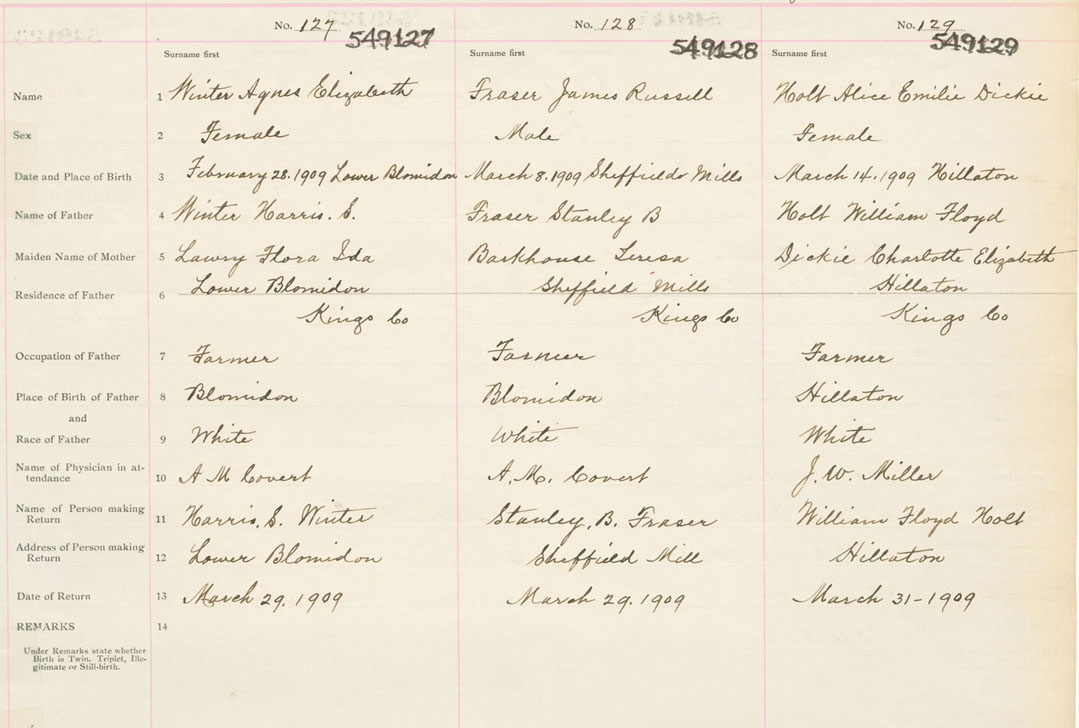 No. 127 No. 128 No. 129
549127 549128 549129
Surname first Surname first Surname first
Name 1 Winter Agnes Elizabeth Fraser James Russell Holt Alice Emilie Dickie
Sex 2 Female Male Female
Date and Place of Birth 3 February 28. 1909 Lower Blomidon March 8. 1909 Sheffields Mills March 14. 1909 Hillaton
Name of Father 4 Winter Harris. S. Fraser Stanley B Holt William Floyd
Maiden Name of Mother 5 Lawry Flora Ida Barkhouse Teresa Dickie Charlotte Elizabeth
Residence of Father 6 Lower Blomidon Sheffield Mills Hillaton
Kings Co Kings Co Kings Co
Occupation of Father 7 Farmer Farmer Farmer
Place of Birth of Father 8 Blomidon Blomidon Hillaton
and
Race of Father 9 White White White
Name of Physician in at-
tendance 10 A M Covert A. M. Covert J. W. Miller
Name of Person making
Return 11 Harris. S. Winter Stanley. B. Fraser William Floyd Holt
Address of Person making
Return 12 Lower Blomidon Sheffield Mill Hillaton
Date of Return 13 March 29. 1909 March 29. 1909 March 31-1909
REMARKS 14
Under Remarks state whether
Birth is Twin, Triplet, Ille-
gitimate or Still-birth.